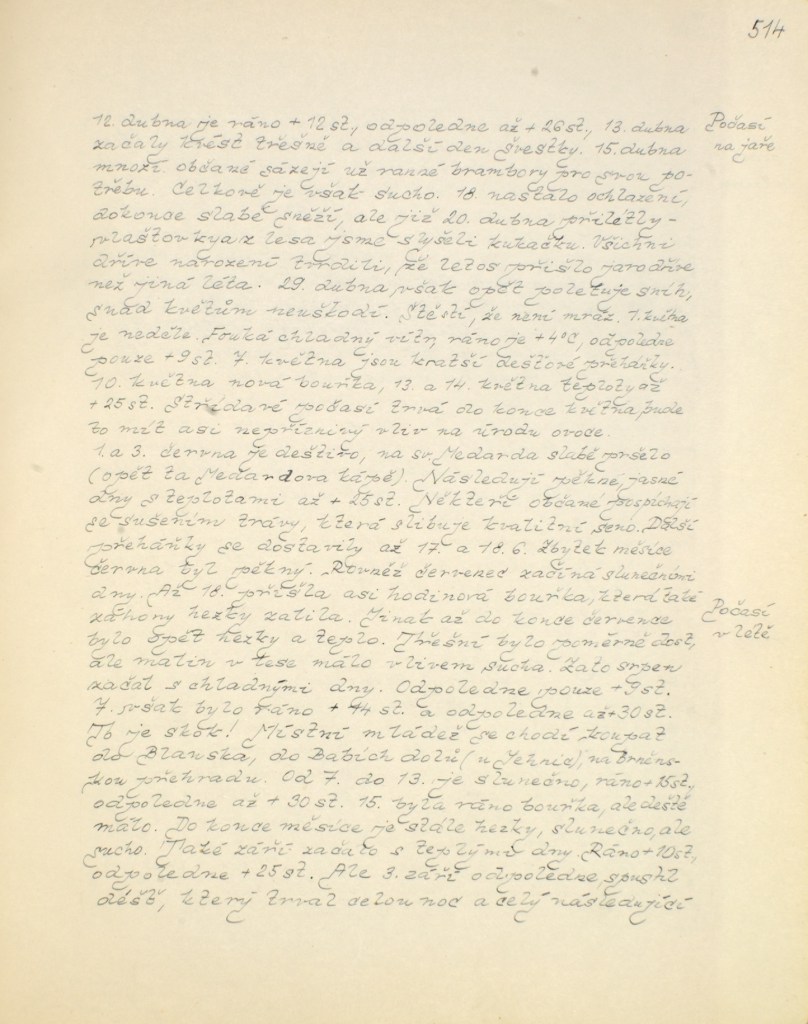 514
12. dubna je ráno + 12 st., odpoledne až + 26 st., 13. dubna
Počasí
na jaře
začaly kvést třešně a další den švestky. 15. dubna
mnozí občané sázejí už ranné brambory pro svou po-
třebu. Celkově je však sucho. 18. nastalo ochlazení,
dokonce slabě sněží, ale již 20. dubna přilétly -
vlaštovky a z lesa jsme slyšeli kukačku. Všichni
dříve narození tvrdili, že letos přišlo jaro dříve
než jiná léta. 29. dubna, však opět poletuje sníh,
snad květům neuškodí. Štěstí, že není mráz. 1. května
je neděle. Fouká chladný vítr, ráno je + 4°C, odpoledne
pouze + 9 st. 7. května jsou kratší dešťové přeháňky.
10. května nová bouřka, 13. a 14. května teploty až
+ 25 st. Střídavé počasí trvá do konce května, bude
to mít asi nepříznivý vliv na úrodu ovoce.
1. a 3. června je deštivo, na sv. Medarda slabě pršelo
(opět ta Medardova kápě). Následují pěkné, jasné
dny s teplotami až + 25 st. Někteří občané pospíchají
se sušením trávy, která slibuje kvalitní seno. Další
přeháňky se dostavily až 17. a 18. 6. Zbytek měsíce
června byl pěkný. Rovněž červenec začíná slunečními
dny. Až 18. přišla asi hodinová bouřka, která také
Počasí
v létě
záhony hezky zalila. Jinak až do konce července
bylo opět hezky a teplo. Třešní bylo poměrně dost,
ale malin v lese málo vlivem sucha. Zato srpen
začal s chladnými dny. Odpoledne pouze + 9 st.
7. však bylo ráno + 14 st. a odpoledne až + 30 st.
To je skok! Místní mládež se chodí koupat
do Blanska, do Babích dolů (u Jehnic), na Brněns-
kou přehradu. Od 7. do 13. je slunečno, ráno + 15 st.,
odpoledne až + 30 st. 15. byla ráno bouřka, ale deště
málo. Do konce měsíce je stále hezky, slunečno, ale
sucho. Také září začalo s teplými dny. Ráno + 10 st.,
odpoledne + 25 st. Ale 3. září odpoledne, spustil
déšť, který trval celou noc a celý následující